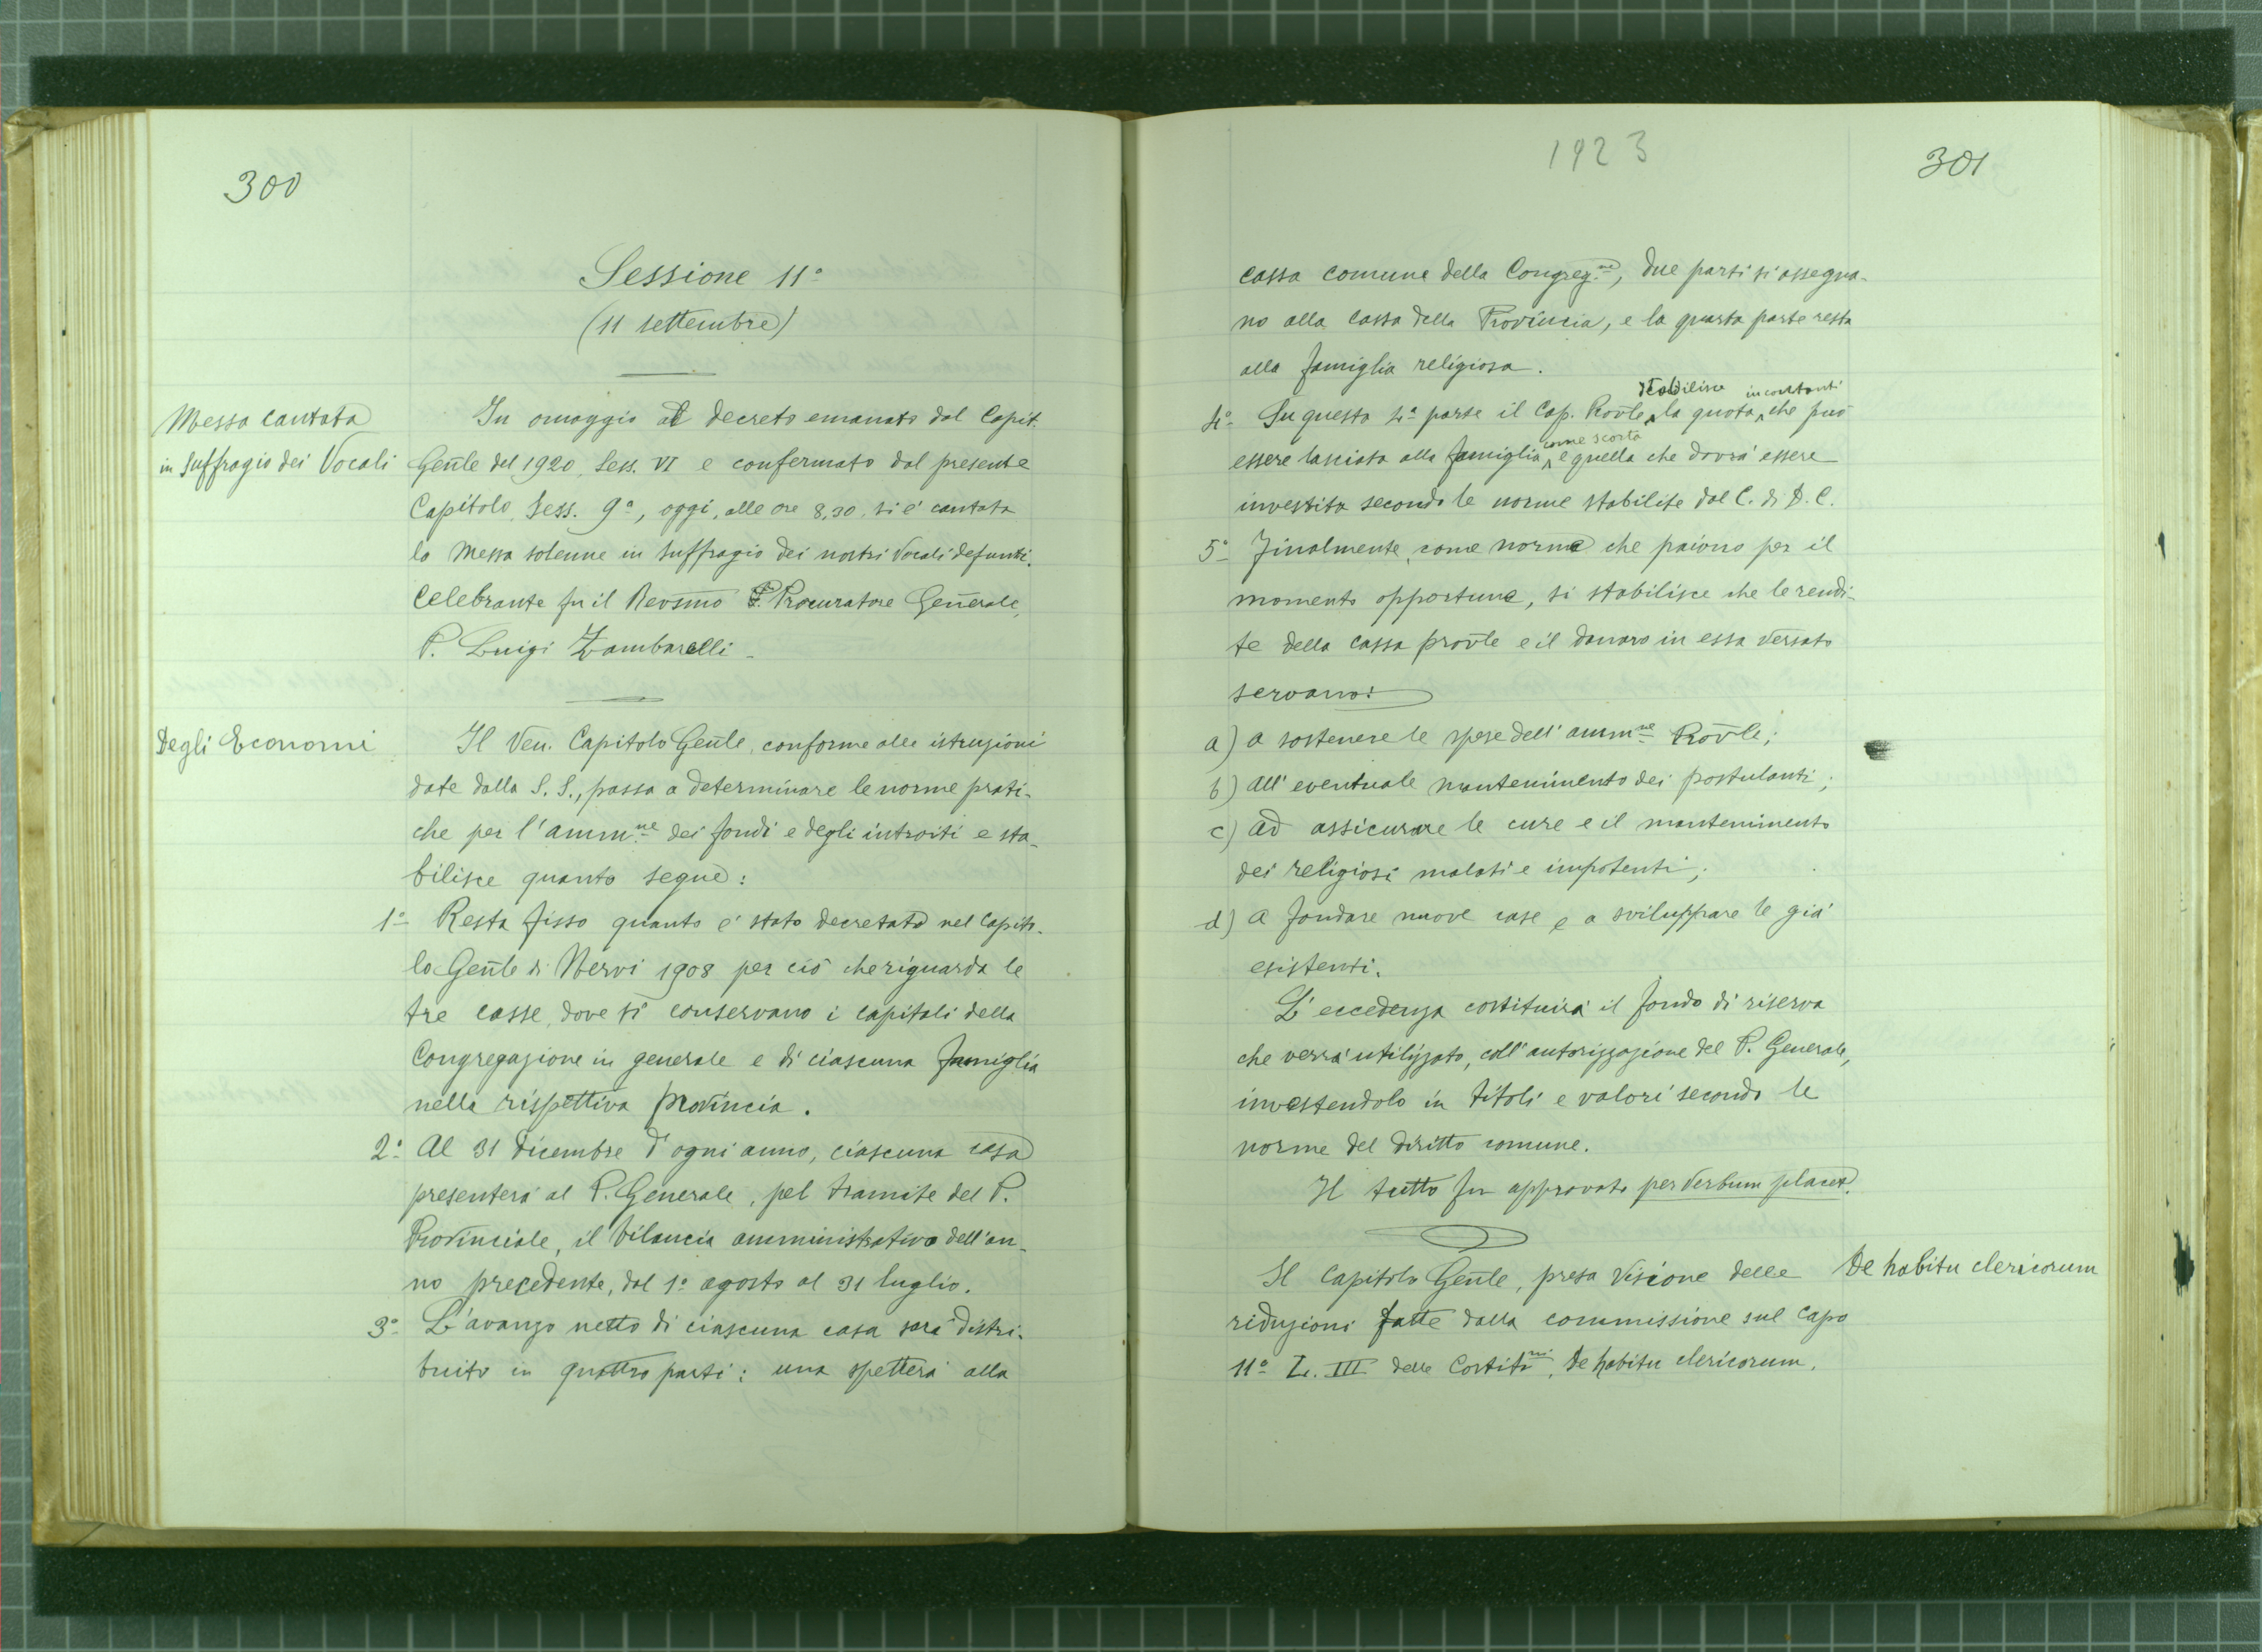 300
Sessione 11ª
(11 settembre)
Messa cantata
in suffragio dei Vocali
In omaggio al decreto emanato dal Capit.
Gen̄le del 1920, Sess. VI e confermato dal presente
Capitolo, Sess. 9ª, oggi, alle ore 8,30, si è cantata
la Messa solenne in suffragio dei nostri Vocali defunti.
Celebrante fu il Revsmo P. Procuratore Gen̄erale,
P. Luigi Zambarelli.
Degli Economi
Il Ven. Capitolo Gen̄le, conforme alle istruzioni
date dalla S. S., passa a determinare le norme prati-
che per l'ammne dei fondi e degli introiti e sta-
bilisce quanto segue:
1º Resta fisso quanto è stato decretato nel Capito-
lo Gen̄le di Nervi 1908 per ciò che riguarda le
tre casse, dove si conservano i capitali della
Congregazione in generale e di ciascuna famiglia
nella rispettiva provincia.
2º Al 31 Dicembre d'ogni anno, ciascuna casa
presenterà al P. Generale, pel tramite del P.
Provinciale, il bilancio amministrativo dell'an-
no precedente, dal 1º agosto al 31 luglio.
3º L'avanzo netto di ciascuna casa sarà distri-
buito in quattro parti: una spetterà alla
1923
301
cassa comune della Congreg.ne, due parti si assegna-
no alla cassa della Provincia, e la quarta parte resta
alla famiglia religiosa.
stabilisce in contanti
4º Su questa 4ª parte il Cap. Prov̄le la quota che può
come scorta
essere lasciata alla famiglia e quella che dovrà essere
investita secondo le norme stabilite dal C. di D. C.
5º Finalmente, come norme che paiono per il
momento opportune, si stabilisce che le rendi-
te della cassa prov̄le e il danaro in essa versato
servano:
a) a sostenere le spese dell'ammne Prov̄le;
b) all'eventuale mantenimento dei postulanti;
c) ad assicurare le cure e il mantenimento
dei religiosi malati e impotenti;
d) a fondare nuove case e a sviluppare le già
esistenti.
L'eccedenza costituirà il fondo di riserva
che verrà utilizzato, coll'autorizzazione del P. Generale,
investendolo in titoli e valori secondo le
norme del diritto comune.
Il tutto fu approvato per verbum placet.
De habitu clericorum
Il Capitolo Gen̄le, presa visione delle
riduzioni fatte dalla commissione sul Capo
11º L. III delle Costitni, De habitu clericorum.